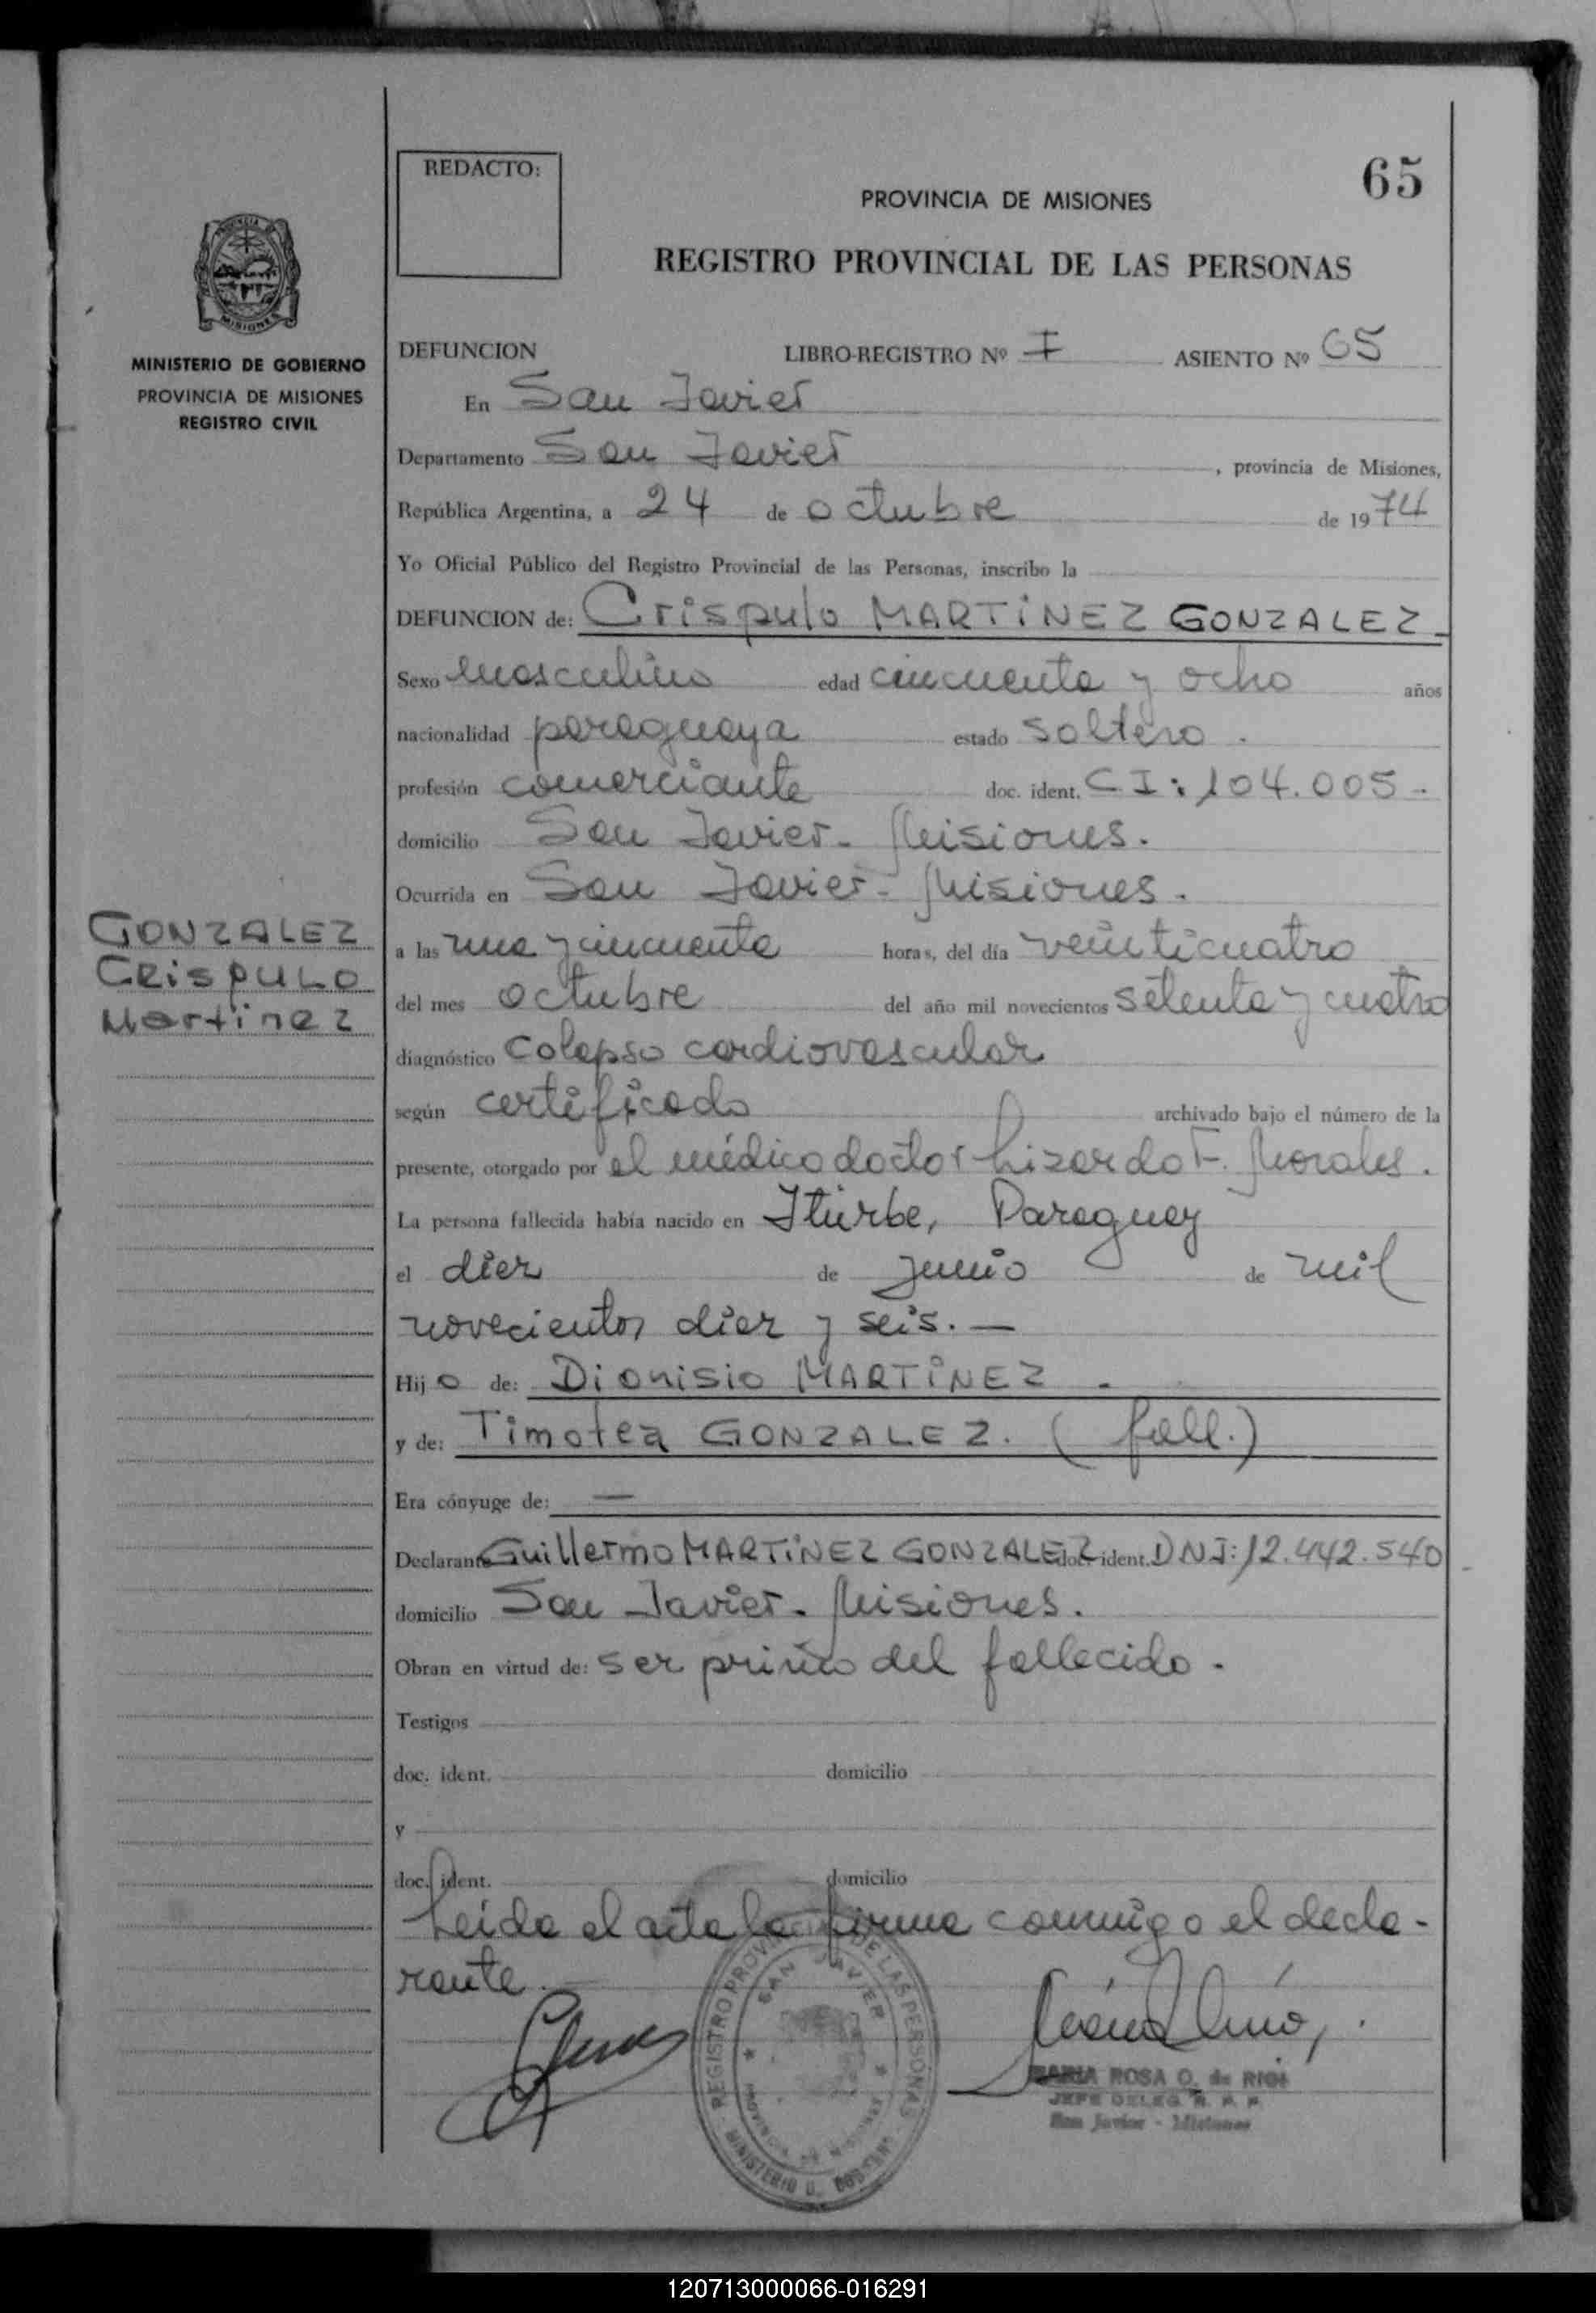 REDACTO:
65
PROVINCIA DE MISIONES
REGISTRO PROVINCIAL DE LAS PERSONAS
MISIONES
MINISTERIO DE GOBIERNO
PROVINCIA DE MISIONES
REGISTRO CIVIL
DEFUNCION LIBRO-REGISTRO Nº I ASIENTO Nº 65
En San Javier
Departamento San Javier, provincia de Misiones,
República Argentina, a 24 de octubre de 1974
Yo Oficial Público del Registro Provincial de las Personas, inscribo la
DEFUNCION de: Crispulo MARTINEZ GONZALEZ
Sexo masculino edad cincuenta y ocho años
nacionalidad paraguaya estado soltero.
profesión comerciante doc. ident. CI: 104.005-
domicilio San Javier- Misiones.
Ocurrida en San Javier- Misiones.
GONZALEZ
CRISPULO
Martinez
a las una y cincuenta horas, del día veinticuatro
del mes octubre del año mil novecientos setenta y cuatro
diagnóstico Colapso cardiovascular
según certificado archivado bajo el número de la
presente, otorgado por el médico doctor Lizardo F. Morales.
La persona fallecida había nacido en Iturbe, Paraguay
el diez de junio de mil
novecientos diez y seis. —
Hijo de: Dionisio MARTINEZ -
y de: Timotea GONZALEZ. (fall.)
Era cónyuge de: —
Declarante Guillermo MARTINEZ GONZALEZ doc. ident. DNI: 12.442.540
domicilio San Javier- Misiones.
Obran en virtud de: ser primo del fallecido.
Testigos
doc. ident. domicilio
y
doc. ident. domicilio
Leída el acta la firma conmigo el decla-
rante.
REGISTRO PROVINCIAL DE LAS PERSONAS
SAN JAVIER
PROVINCIA DE MISIONES
MINISTERIO D. GOBIERNO
MARIA ROSA O. de RIOS
JEFE DELEG. R. P. P.
San Javier - Misiones
120713000066-016291